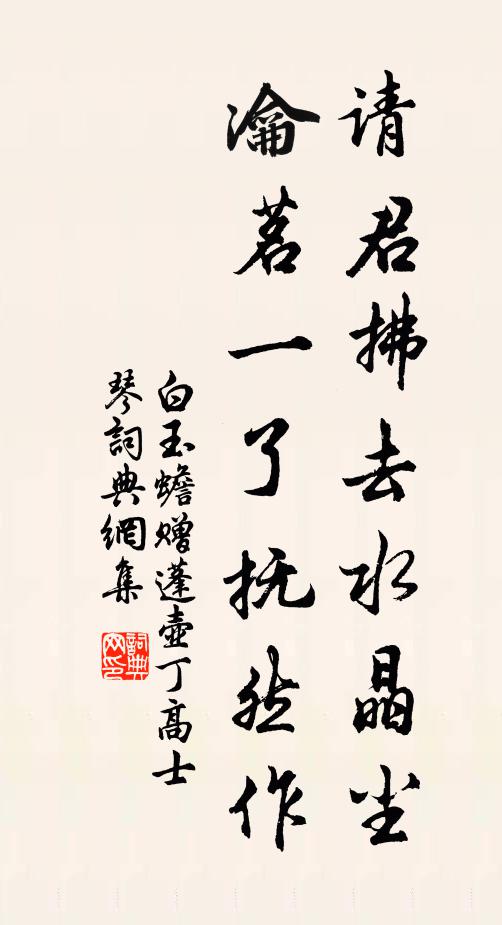 请君拂去水晶尘
瀹茗一了抚然作
白玉蟾赠蓬壶丁高士
琴詞典網集
詞典网印